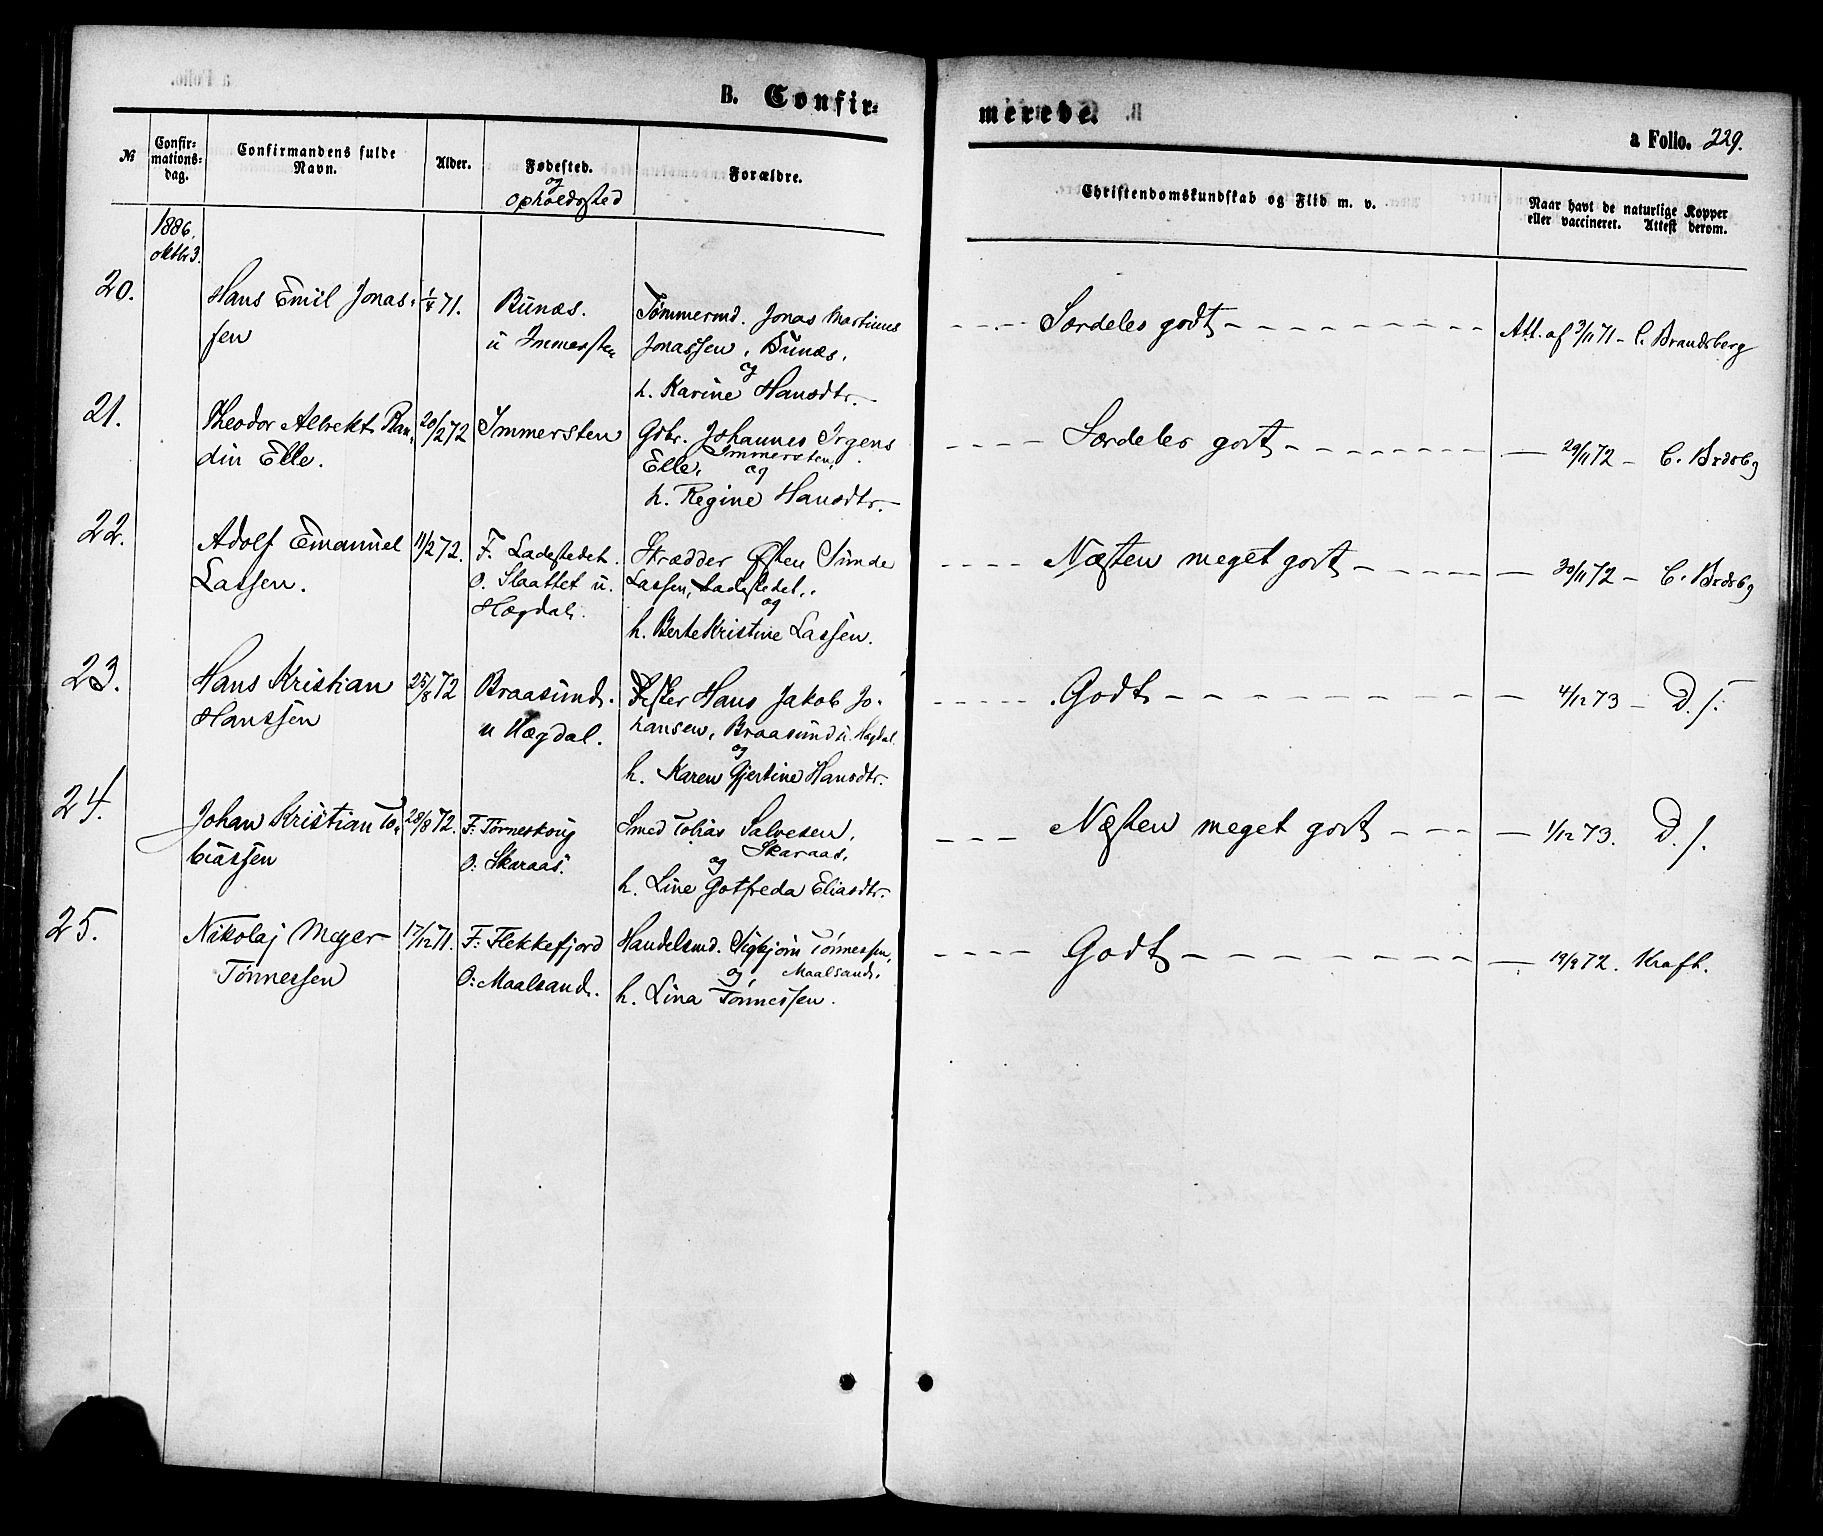 B. Confir-
merede.
a Folio. 229.
№
Confir-
mations-
dag.
Confirmandens fulde
Navn.
Alder.
Fødested.
og
Opholdssted
Forældre.
Christendomskundskab og Flid m. v.
Naar havt de naturlige Kopper
eller vaccineret. Attest derom.
1886.
oktbr 3.
20.
Hans Emil Jonas-
sen
1/4 71.
Bunæs.
u Immersten
Tømmermd. Jonas Martinus
Jonassen, Bunæs,
og
h. Karine Hansdtr.
Særdeles godt
Att. af 3/11 71 - C. Brandsberg
21.
Theodor Albrekt Ran-
din Elle.
20/2 72
Immersten
Gdbr. Johannes Irgens
Immersten,
Elle,
og
h. Regine Hansdtr.
Særdeles godt
29/11 72 - C. Brdsbg
22.
Adolf Emanuel
Lassen.
11/2 72.
F. Ladestedet.
O. Slaattet u.
Hægdal.
Skrædder Østen Sunde
Lassen, Ladestedet,
og
h. Berte Kristine Lassen.
Næsten meget godt
30/11 72 - C. Brdsbg
23.
Hans Kristian
Hanssen
25/8 72
Braasund.
u Hægdal.
Fisker Hans Jakob Jo-
hansen, Braasund u. Hægdal
og
h. Karen Gjertine Hansdtr.
Godt
4/12 73 - D. s.
24.
Johan Kristian To-
biassen
28/8 72.
F: Tørneskoug
O: Skaraas.
Smed Tobias Salvesen,
Skaraas,
og
h. Line Gotfreda Eliasdtr.
Næsten meget godt
1/12 73. D. s.
25.
Nikolaj Meyer
Tönnessen
17/12 71.
F: Flekkefjord
O: Maalsand.
Handelsmd. Sigbjørn Tönnessen,
Maalsand,
og
h. Lina Tönnessen.
Godt
19/9 72. Kraft.